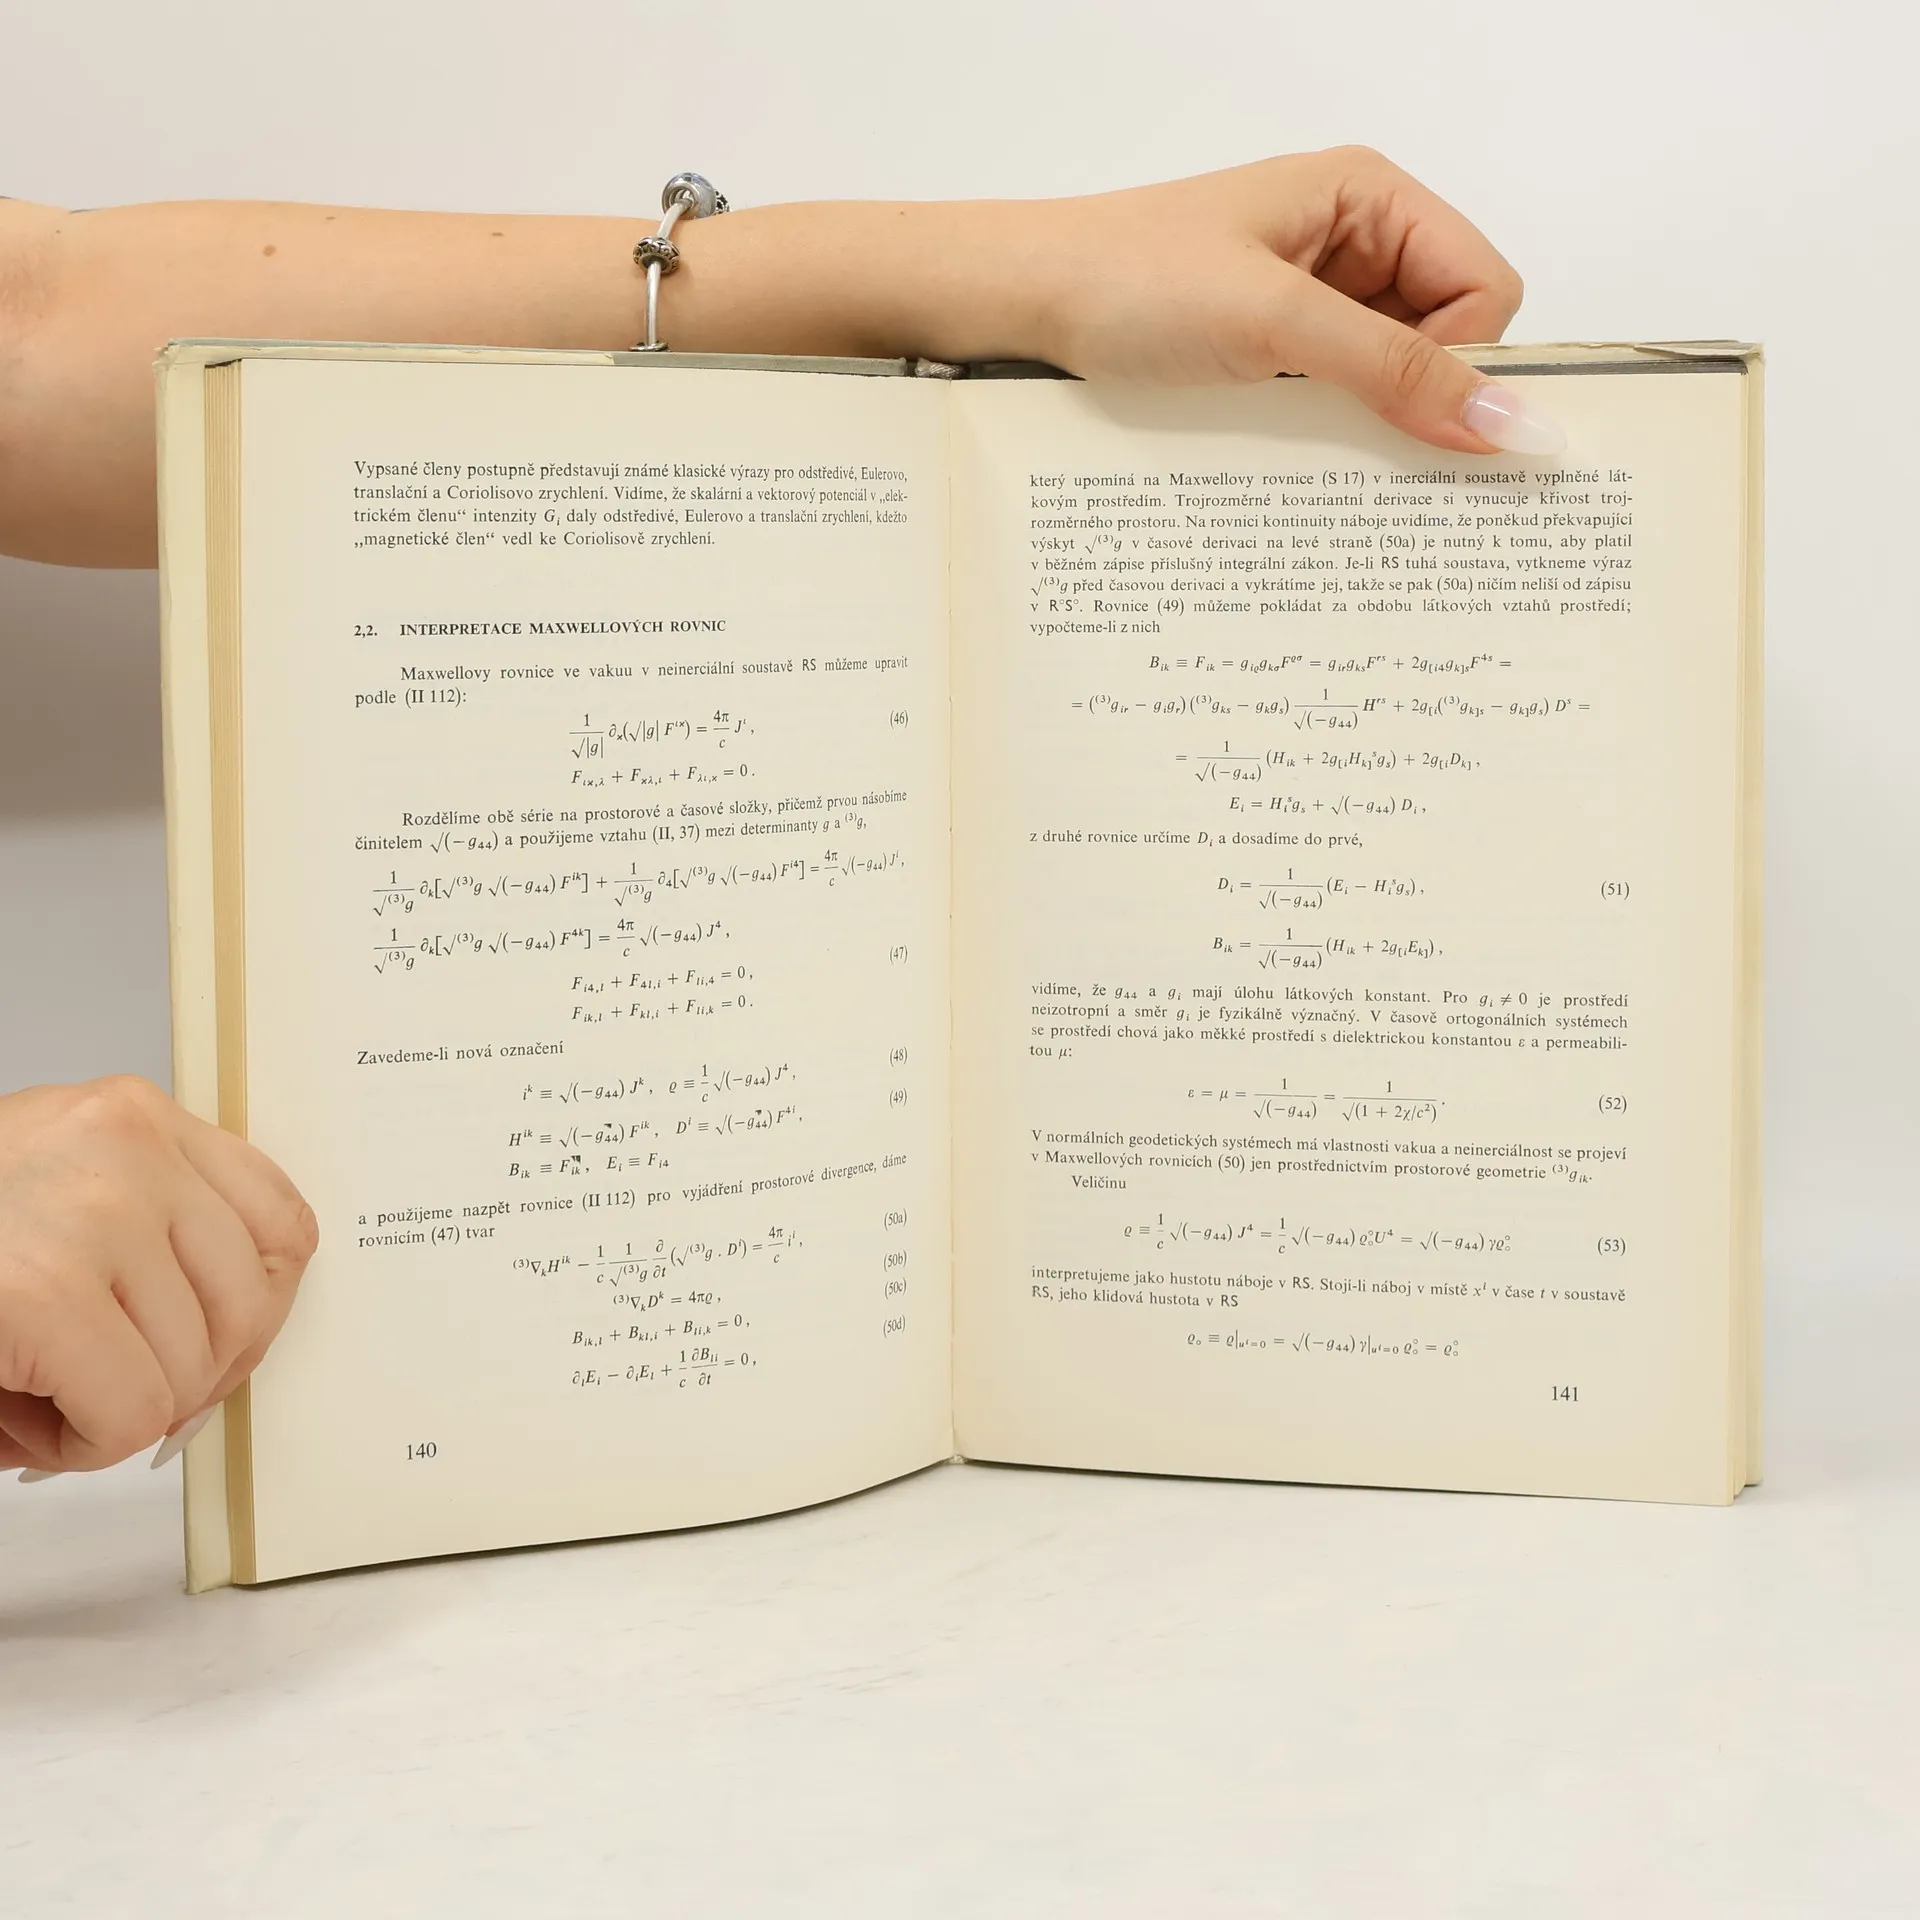 Vypsané členy postupně představují známé klasické výrazy pro odstředivé, Eulerovo,
translační a Coriolisovo zrychlení. Vidíme, že skalární a vektorový potenciál v „elek-
trickém členu“ intenzity Gᵢ daly odstředivé, Eulerovo a translační zrychlení, kdežto
„magnetické člen“ vedl ke Coriolisově zrychlení.
2,2. INTERPRETACE MAXWELLOVÝCH ROVNIC
Maxwellovy rovnice ve vakuu v neinerciální soustavě RS můžeme upravit
podle (II 112):
1/√|g| ∂_ϰ(√|g| F^{ιϰ}) = 4π/c J^ι, (46)
F_{ιϰ,λ} + F_{ϰλ,ι} + F_{λι,ϰ} = 0.
Rozdělíme obě série na prostorové a časové složky, přičemž prvou násobíme
činitelem √(−g₄₄) a použijeme vztahu (II, 37) mezi determinanty g a ⁽³⁾g,
1/√⁽³⁾g ∂_k[√⁽³⁾g √(−g₄₄) F^{ik}] + 1/√⁽³⁾g ∂₄[√⁽³⁾g √(−g₄₄) F^{i4}] = 4π/c √(−g₄₄) J^i,
1/√⁽³⁾g ∂_k[√⁽³⁾g √(−g₄₄) F^{4k}] = 4π/c √(−g₄₄) J⁴,
(47)
F_{i4,l} + F_{4l,i} + F_{li,4} = 0,
F_{ik,l} + F_{kl,i} + F_{li,k} = 0.
Zavedeme-li nová označení
i^k ≡ √(−g₄₄) J^k, ϱ ≡ 1/c √(−g₄₄) J⁴, (48)
H^{ik} ≡ √(−g₄₄) F^{ik}, D^i ≡ √(−g₄₄) F^{4i}, (49)
B_{ik} ≡ F_{ik}, E_i ≡ F_{i4}
a použijeme nazpět rovnice (II 112) pro vyjádření prostorové divergence, dáme
rovnicím (47) tvar
⁽³⁾∇_k H^{ik} − 1/c 1/√⁽³⁾g ∂/∂t (√⁽³⁾g . D^i) = 4π/c i^i, (50a)
⁽³⁾∇_k D^k = 4πϱ, (50b)
B_{ik,l} + B_{kl,i} + B_{li,k} = 0, (50c)
∂_l E_i − ∂_i E_l + 1/c ∂B_{li}/∂t = 0, (50d)
140
který upomíná na Maxwellovy rovnice (S 17) v inerciální soustavě vyplněné lát-
kovým prostředím. Trojrozměrné kovariantní derivace si vynucuje křivost troj-
rozměrného prostoru. Na rovnici kontinuity náboje uvidíme, že poněkud překvapující
výskyt √⁽³⁾g v časové derivaci na levé straně (50a) je nutný k tomu, aby platil
v běžném zápise příslušný integrální zákon. Je-li RS tuhá soustava, vytkneme výraz
√⁽³⁾g před časovou derivaci a vykrátíme jej, takže se pak (50a) ničím neliší od zápisu
v R°S°. Rovnice (49) můžeme pokládat za obdobu látkových vztahů prostředí;
vypočteme-li z nich
B_{ik} ≡ F_{ik} = g_{iϱ}g_{kσ}F^{ϱσ} = g_{ir}g_{ks}F^{rs} + 2g_{[i4}g_{k]s}F^{4s} =
= (⁽³⁾g_{ir} − g_i g_r)(⁽³⁾g_{ks} − g_k g_s) 1/√(−g₄₄) H^{rs} + 2g_{[i}(⁽³⁾g_{k]s} − g_{k]}g_s) D^s =
= 1/√(−g₄₄) (H_{ik} + 2g_{[i}H_{k]}^s g_s) + 2g_{[i}D_{k]},
E_i = H_i^s g_s + √(−g₄₄) D_i,
z druhé rovnice určíme D_i a dosadíme do prvé,
D_i = 1/√(−g₄₄) (E_i − H_i^s g_s), (51)
B_{ik} = 1/√(−g₄₄) (H_{ik} + 2g_{[i}E_{k]}),
vidíme, že g₄₄ a g_i mají úlohu látkových konstant. Pro g_i ≠ 0 je prostředí
neizotropní a směr g_i je fyzikálně význačný. V časově ortogonálních systémech
se prostředí chová jako měkké prostředí s dielektrickou konstantou ε a permeabili-
tou μ:
ε = μ = 1/√(−g₄₄) = 1/√(1 + 2χ/c²). (52)
V normálních geodetických systémech má vlastnosti vakua a neinerciálnost se projeví
v Maxwellových rovnicích (50) jen prostřednictvím prostorové geometrie ⁽³⁾g_{ik}.
Veličinu
ϱ ≡ 1/c √(−g₄₄) J⁴ = 1/c √(−g₄₄) ϱ°₀U⁴ = √(−g₄₄) γϱ°₀ (53)
interpretujeme jako hustotu náboje v RS. Stojí-li náboj v místě x^i v čase t v soustavě
RS, jeho klidová hustota v RS
ϱ₀ ≡ ϱ|_{u^i=0} = √(−g₄₄) γ|_{u^i=0} ϱ°₀ = ϱ°₀
141